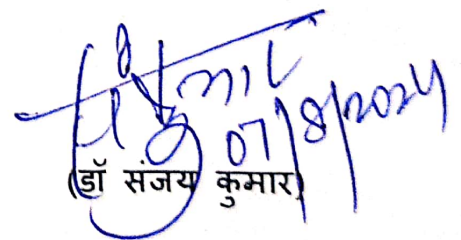 07/8/2024
(डॉ संजय कुमार)